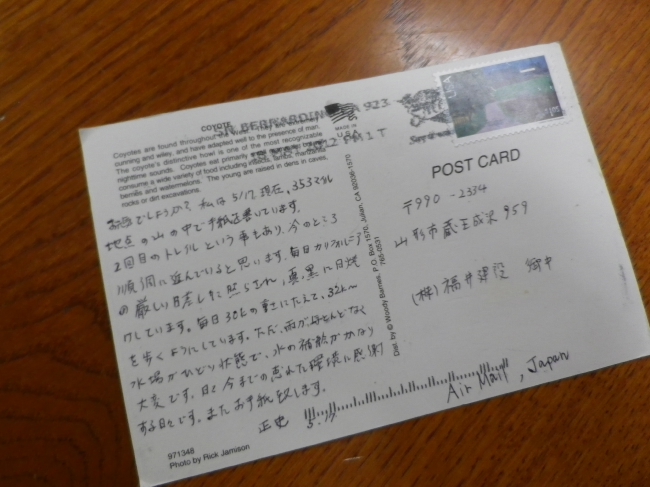 coyote
Coyotes are found throughout
cunning and wiley, and have adapted well to the presence of man.
The coyote's distinctive howl is one of the most recognizable
nighttime sounds. Coyotes eat primarily
consume a wide variety of food including insects,
berries and watermelons. The young are raised in dens in caves,
rocks or dirt excavations.
お元気でしょうか? 私は5/17現在、353マイル
地点の山の中で手紙を書いています。
2回目のトレイルという事もあり、今のところ
順調に進んでいると思います。毎日カリフォルニア
の厳しい日差しに照らされ、真黒に日焼
けしています。毎日30kの重さにたえて、32km〜
を歩くようにしています。ただ、雨がほとんどなく
水場がひどい状態で、水の補給がかなり
大変です。日々今までの恵れた環境に感謝
する日々です。またお手紙致します。
正史 5.17
971348
Photo by Rick Jamison
Dist. by © Woody Barnes, P.O. Box 1570, Julian, CA 92036-1570
765-0531
MADE IN
U.S.A.
SAN BERNARDINO CA 923
2012 PM 1 T
USA
POST CARD
〒990-2334
山形市蔵王成沢959
(株)福井建設 御中
Air Mail, Japan